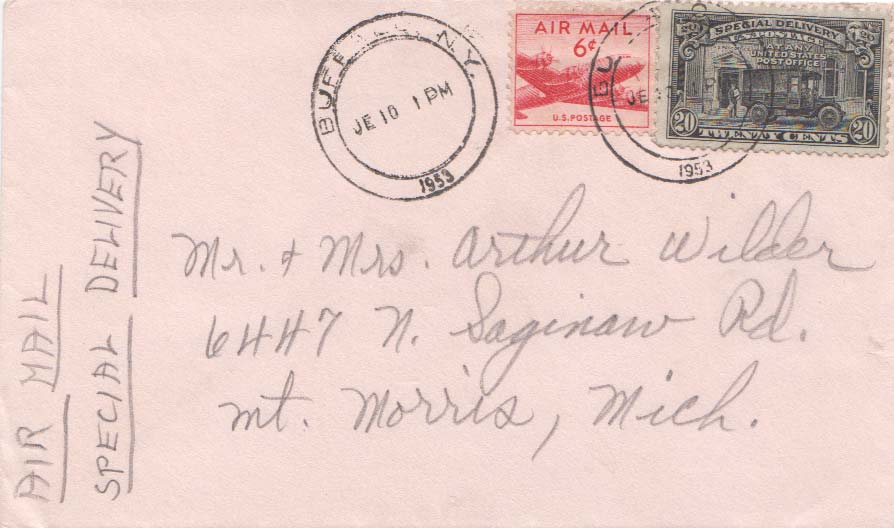 BUFFALO, N.Y.
JE 10 1 PM
1953
AIR MAIL
6¢
U.S. POSTAGE
SPECIAL DELIVERY
U.S. POSTAGE
AT ANY
UNITED STATES
POST OFFICE
20 TWENTY CENTS 20
1953
Mr. & Mrs. Arthur Wilder
6447 N. Saginaw Rd.
Mt. Morris, Mich.
AIR MAIL
SPECIAL DELIVERY